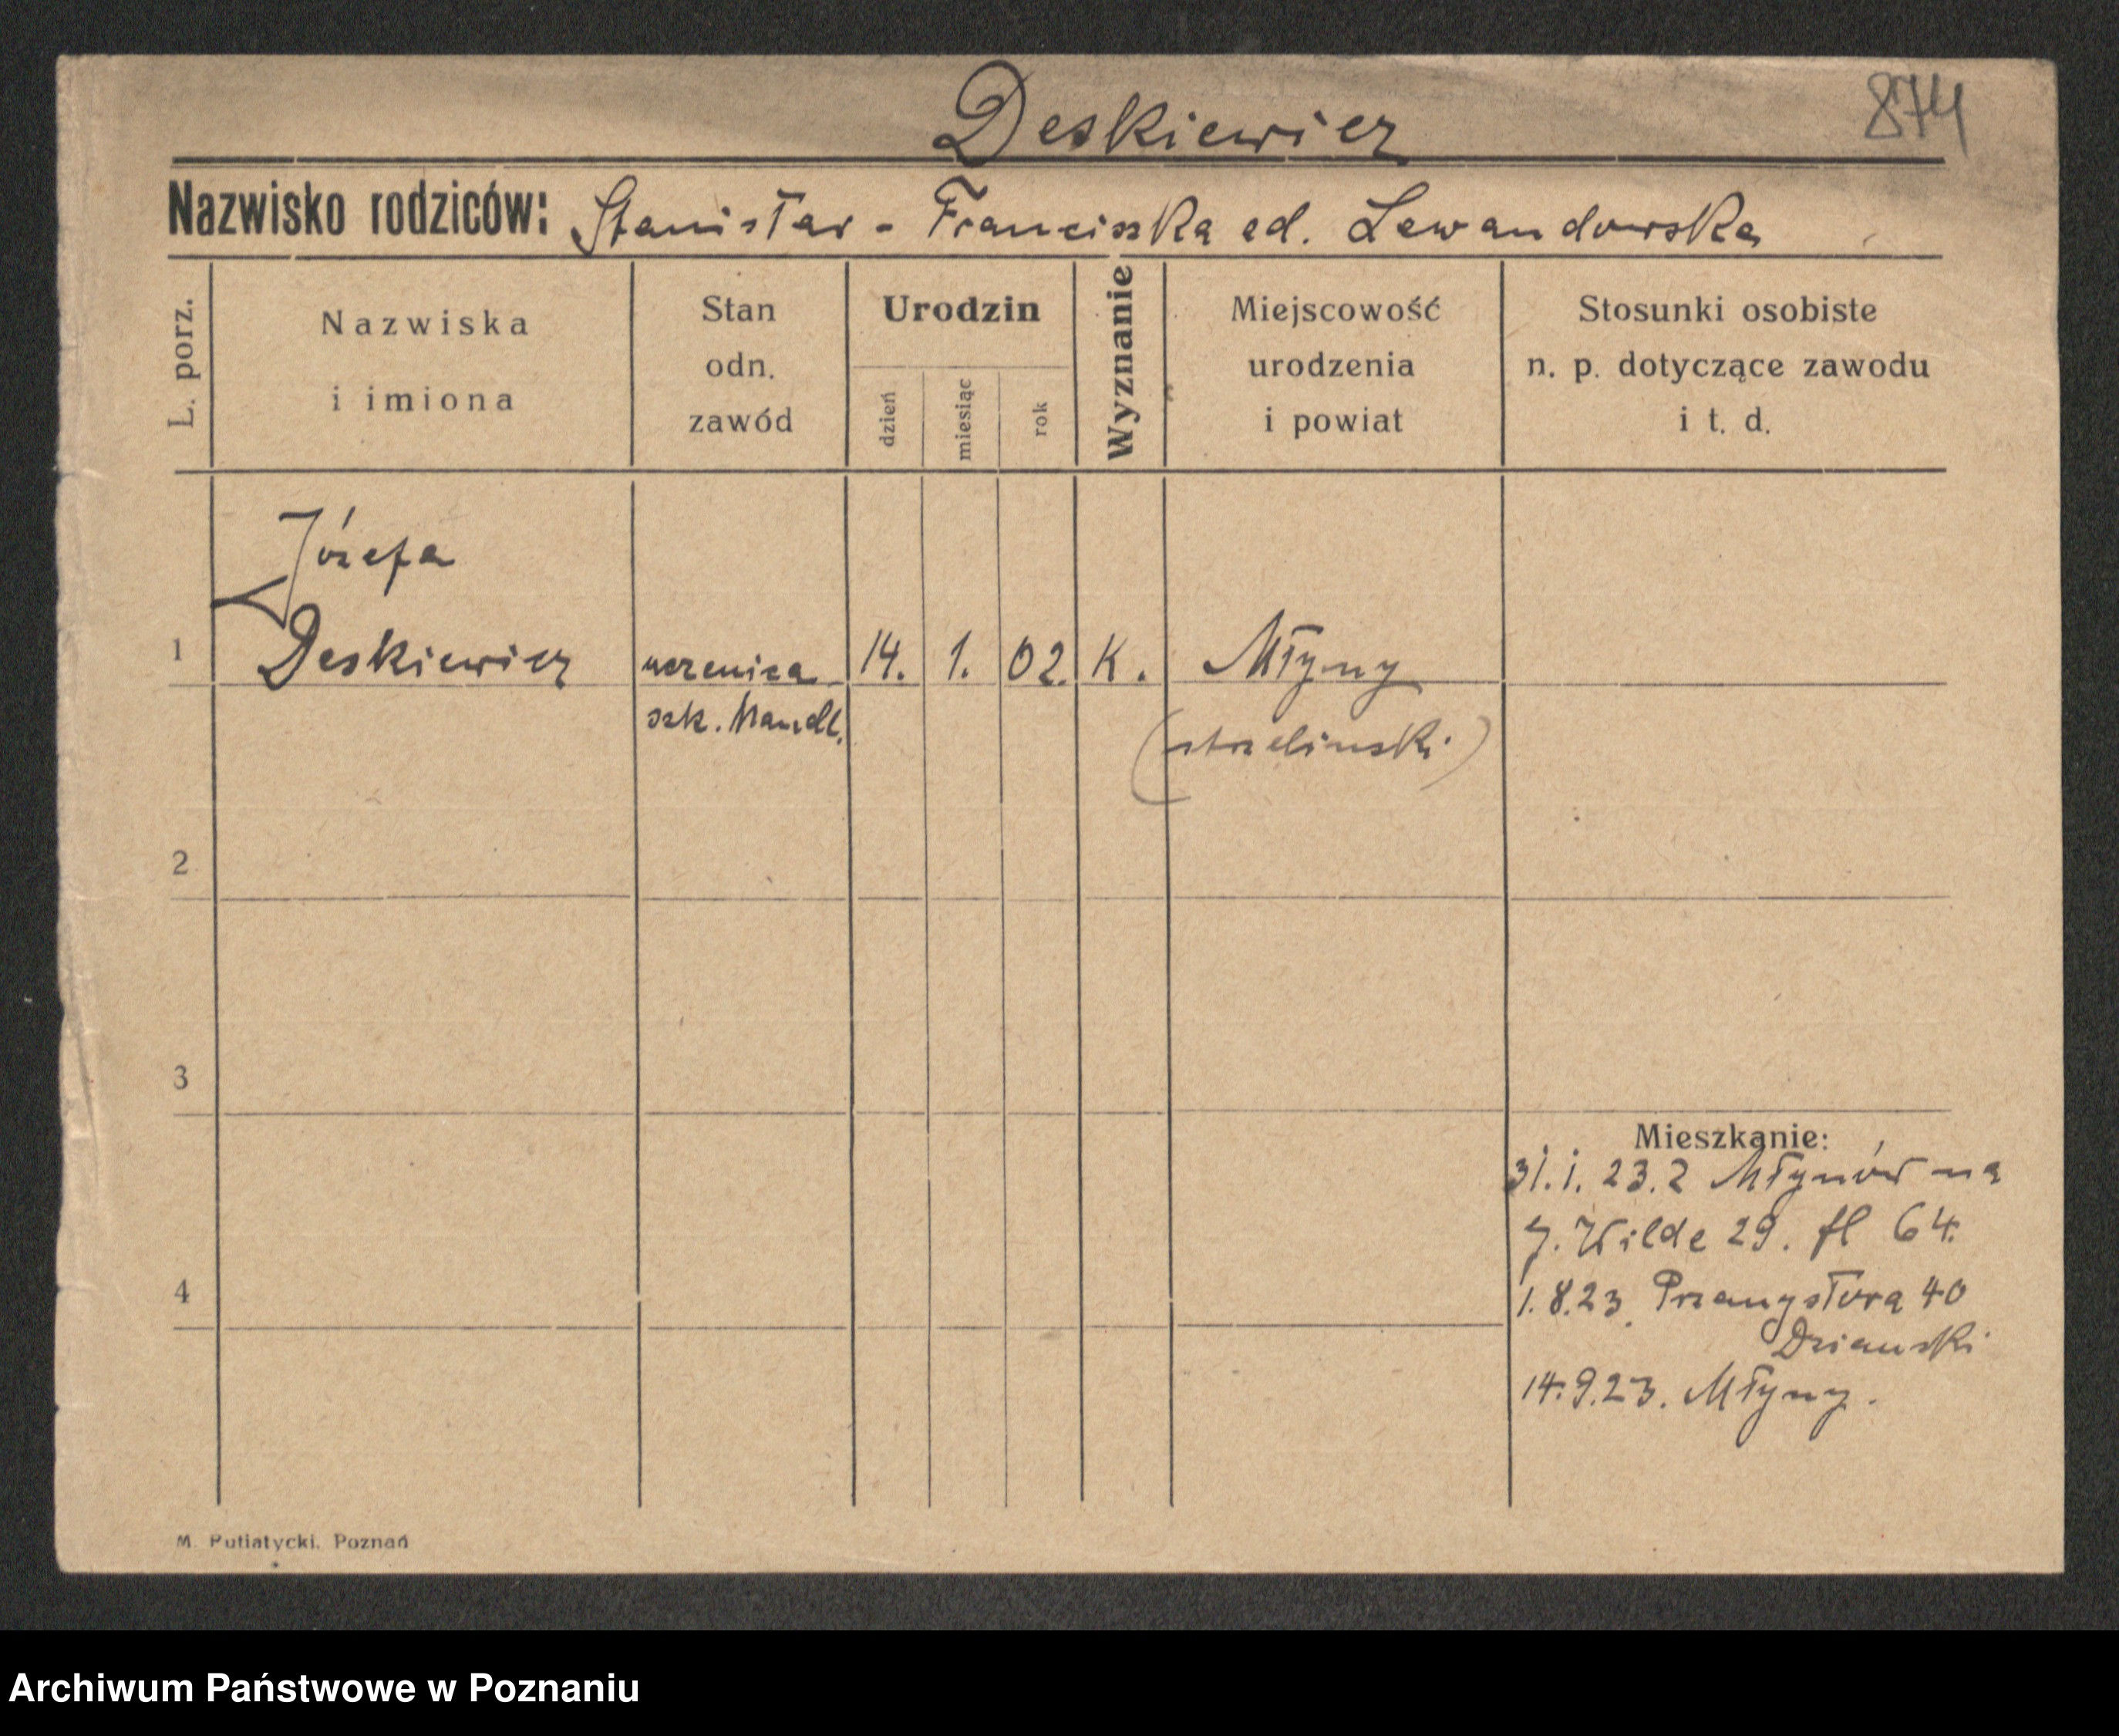 Deskiewicz
874
Nazwisko rodziców: Stanisław - Franciszka ed. Lewandowska
L. porz.
Nazwiska
i imiona
Stan
odn.
zawód
Urodzin
dzień
miesiąc
rok
Wyznanie
Miejscowość
urodzenia
i powiat
Stosunki osobiste
n. p. dotyczące zawodu
i t. d.
Józefa
1 Deskiewicz uczenica 14. 1. 02. K. Młyny
szk. Handl. (strzelinski)
2
3
Mieszkanie:
31.1.23. z Młynów na
Wilde 29. fl 64.
4
1.8.23. Przemysłowa 40
Dziamski
14.9.23. Młyny.
M. Putiatycki. Poznań
Archiwum Państwowe w Poznaniu